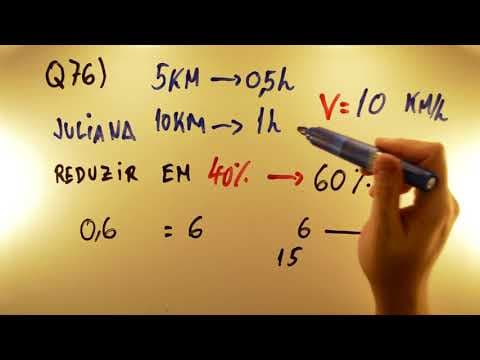 Q76) 5KM → 0,5h
JULIANA 10KM → 1h V=10 KM/h
REDUZIR EM 40% → 60%
0,6 = 6 6 —
15